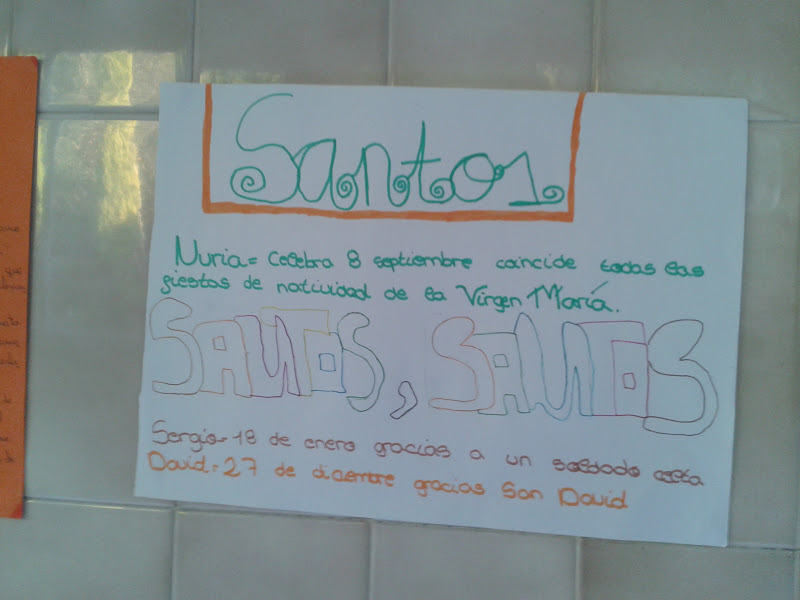 Santos
Nuria= Celebra 8 septiembre coincide todas las
fiestas de natividad de la Virgen María.
SANTOS, SANTOS
Sergio=18 de enero gracias a un soldado
David=27 de dicembre gracias San David